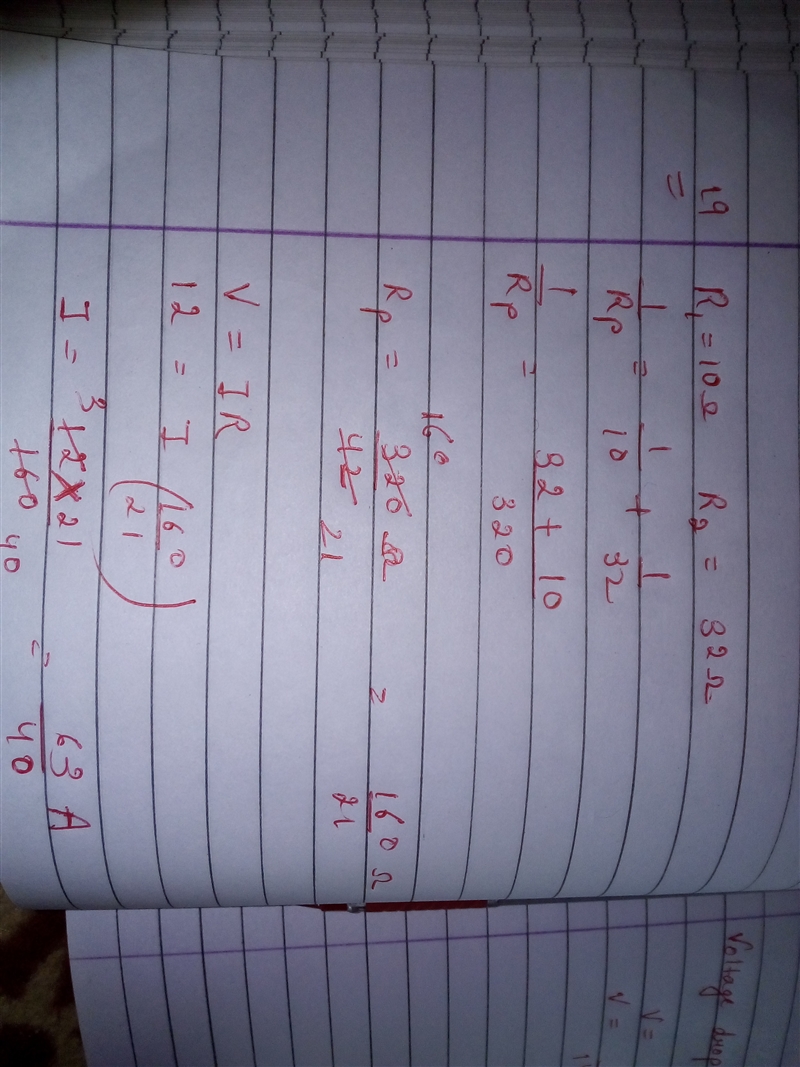 19 R₁ = 10Ω R₂ = 32Ω
=
1/Rp = 1/10 + 1/32
1/Rp = 32 + 10/320
Rp = 320/42 Ω = 160/21 Ω
160
21
V = IR
12 = I (160/21)
I = 12 × 21/160 = 63/40 A
3
40
Voltage drop
V =
V =